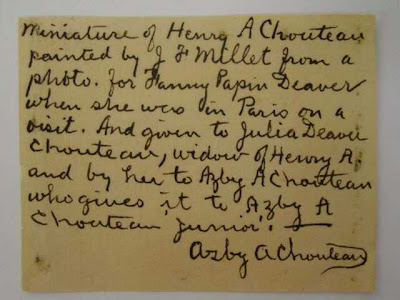 Miniature of Henry A Chouteau
painted by J F Millet from a
photo. for Fanny Papin Deaver
when she was in Paris on a
visit. And given to Julia Deaver
Chouteau, widow of Henry A.
and by her to Azby A Chouteau
who gives it to Azby A
Chouteau junior.
Azby A Chouteau